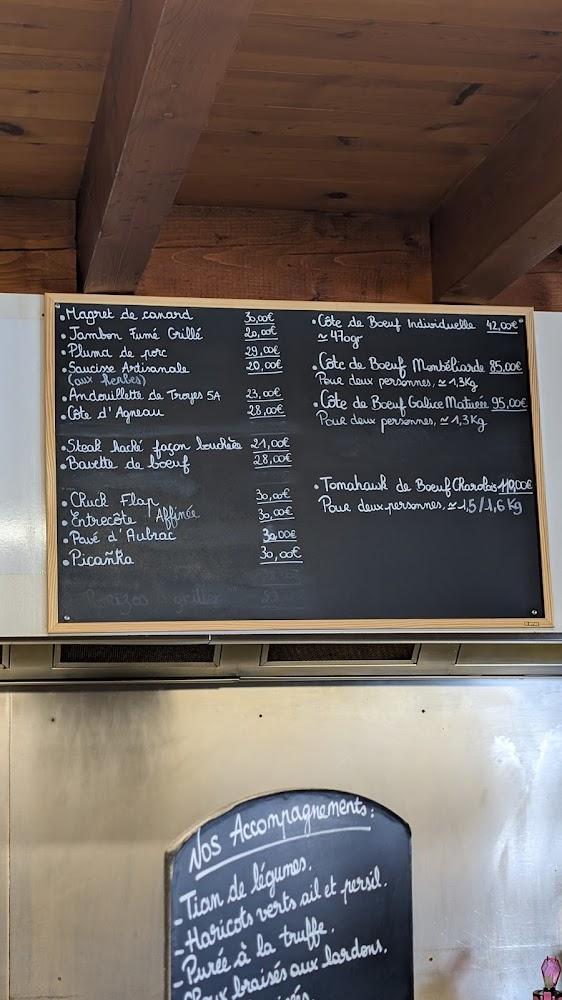 • Magret de canard 30,00€
• Jambon Fumé Grillé 20,00€
• Pluma de porc 29,00€
• Saucisse Artisanale 20,00€
(aux herbes)
• Andouillette de Troyes 5A 23,00€
• Côte d'Agneau 28,00€
• Steak haché façon bouchère 21,00€
• Bavette de boeuf 28,00€
• Chuck Flap 30,00€
• Entrecôte Affinée 30,00€
• Pavé d'Aubrac 30,00€
• Picañha 30,00€
• Côte de Boeuf Individuelle 42,00€
≃ 470gr
• Côte de Boeuf Montbéliarde 85,00€
Pour deux personnes, ≃ 1,3Kg
• Côte de Boeuf Galice Maturée 95,00€
Pour deux personnes, ≃ 1,3Kg
• Tomahawk de Boeuf Charolais 110,00€
Pour deux personnes, ≃ 1,5/1,6 Kg
Nos Accompagnements :
- Tian de légumes.
- Haricots verts ail et persil.
- Purée à la truffe.
braisés aux lardons.